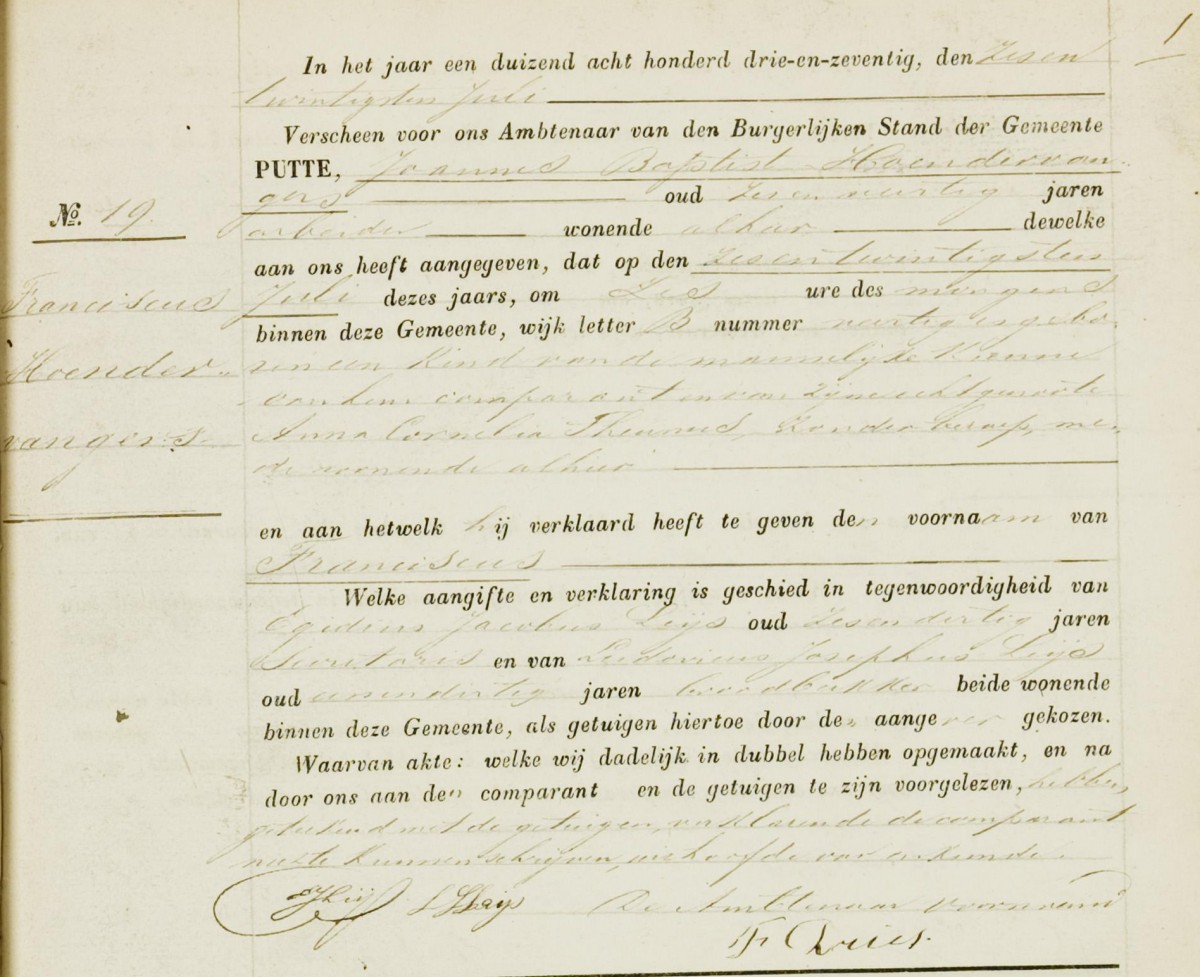 1
In het jaar een duizend acht honderd drie-en-zeventig, den Zesen
twintigsten Juli
Verscheen voor ons Ambtenaar van den Burgerlijken Stand der Gemeente
PUTTE, Joannes Baptist Hoendervan-
gers oud Zesenveertig jaren
arbeider wonende alhier dewelke
aan ons heeft aangegeven, dat op den Zesentwintigsten
Juli dezes jaars, om Zes ure des morgens
binnen deze Gemeente, wijk letter B nummer veertig is gebo-
ren een Kind van de mannelijke Kunne
van hem comparant en van zijne echtgenoote
Anna Cornelia Theunes, Zonder beroep, me-
de wonende alhier
en aan hetwelk hij verklaard heeft te geven den voornaam van
Franciscus
Welke aangifte en verklaring is geschied in tegenwoordigheid van
Egidius Jacobus Leijs oud Zesendertig jaren
Secretaris en van Ludovicus Josephus Leijs
oud eenendertig jaren broodbakker beide wonende
binnen deze Gemeente, als getuigen hiertoe door den aangever gekozen.
Waarvan akte: welke wij dadelijk in dubbel hebben opgemaakt, en na
door ons aan den comparant en de getuigen te zijn voorgelezen, hebben
geteekend met de getuigen, verklarende de comparant
niet te Kunnen schrijven, uit hoofde van onkunde.
Leijs L J Leijs De Ambtenaar voornoemd
Dries.
No. 19.
Franciscus
Hoender-
vangers.